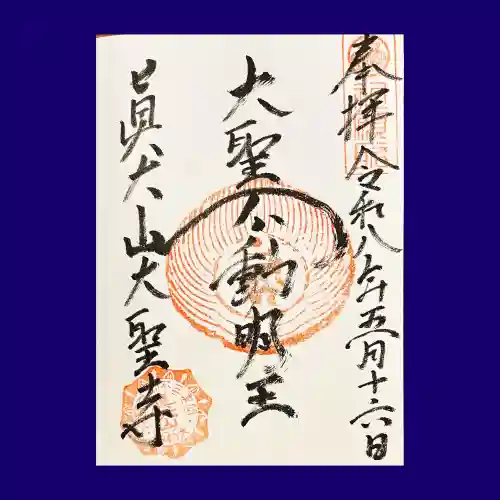 奉拝 令和八年五月十六日
大聖不動明王
七眞犬山大聖寺